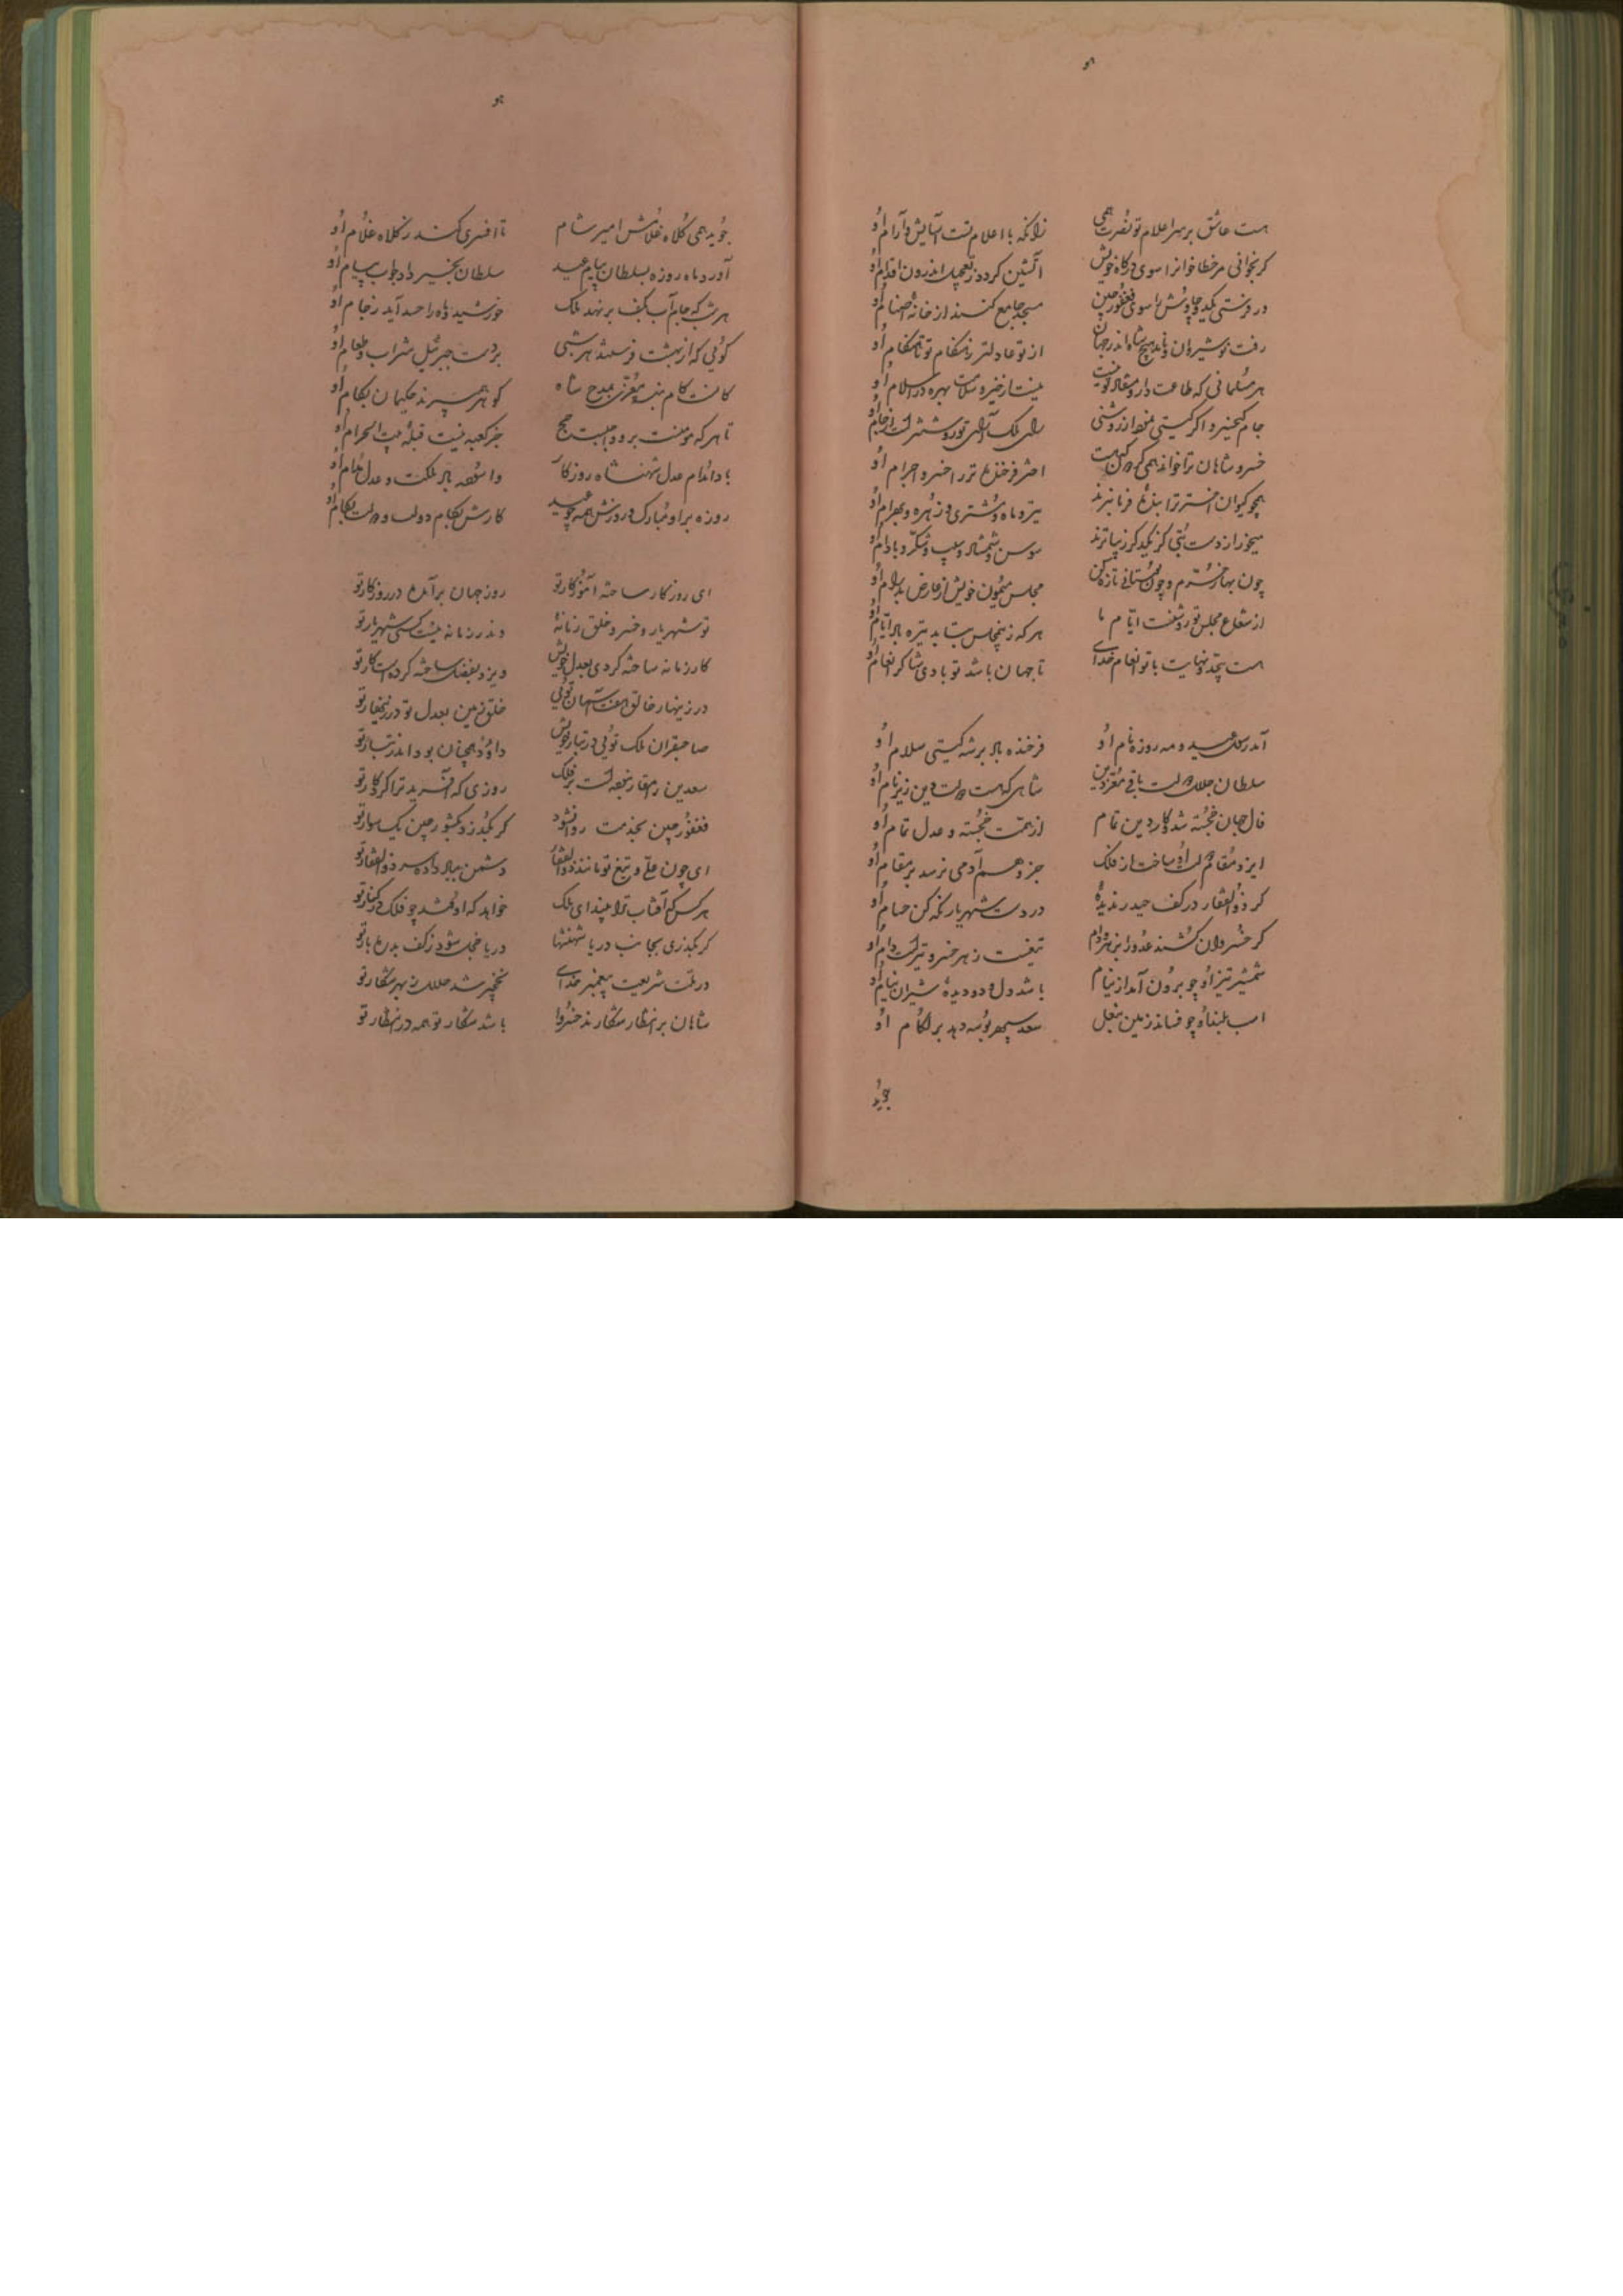 هست عاشق بر سر اعلام تو نصرت همی زانکه با اعلام تست آسایش و آرام او
گر بخوانی مر خطا خانرا سوی درگاه خویش آتشین گردد ز تعجیل اندرون اقدام او
ور فرستی یک چاوش را سوی فغفور چین مسجد جامع کنند از خانه اصنام او
رفت نوشیروان و نامد هیچ شاه اندر جهان از تو عادلتر ز هنگام تو تا هنگام او
هر مسلمانی که طاعت دار و منقاد تو نیست نیست از خیر و سلامت بهره در اسلام او
جام کیخسرو اگر گیتی نمود از روشنی رای ملک آرای تو روشنتر است از جام او
خسرو شاهان ترا خواند همی گردون که هست اختر فرخنده تر را اختر و اجرام او
همچو کیوان اختر ترا بنده فرمانبرند تیر و ماه و مشتری و زهره و بهرام او
میخور از دست بتی کز یکدگر زیباترند سوسن و شمشاد و سیب و شکر و بادام او
چون بهار خرم و چون بوستان تازه کن مجلس میمون خویش از عارض پدرام او
از شعاع مجلس تو روشنست ایام ما هر که زین مجلس بتابد تیره باد ایام او
هست بیحد و نهایت با تو انعام خدای تا جهان باشد تو بادی شاکر انعام او
آمد رسول عید و مه روزه نام او فرخنده باد بر شه گیتی سلام او
سلطان جلال دولت باقی معز دین شاهی که هست دولت و دین زیر نام او
فال جهان خجسته شد و کار دین تمام از همت خجسته و عدل تمام او
ایزد مقام همت او ساخت از فلک جز وهم آدمی نرسد بر مقام او
گر ذوالفقار در کف حیدر ندیدهٔ در دست شهریار نگه کن حسام او
گر خسروان کشند عدو را ببزم و دام تیغست زهر خسرو و تیر است دام او
شمشیر تیز او چو برون آمد از نیام باشد دل و دو دیدهٔ شیران نیام او
اسب بلند او چو فشاند زمین بنعل سعد سپهر بوسه دهد بر لگام او
جوید
جوید همی کلاه غلامش امیر شام تا افسری کند ز کلاه غلام او
آورد ماه روزه بسلطان پیام عید سلطان بخیر داد جواب پیام او
هر شب که جام آب بکف برنهد ملک خورشید و ماه را حسد آید ز جام او
گوئی که از بهشت فرستند هر شبی بر دست جبرئیل شراب و طعام او
کانست کام بنده معزی بمدح شاه گوهر سپرند حکیمان بکام او
تا هر که مؤمنست برو واجبست حج جز کعبه نیست قبله بیت الحرام او
بادا نظام عدل شهنشاه روزگار واسوده باد ملکت و عدل نظام او
روزه بر او مبارک و روزش همه چو عید کارش بکام دولت و دولت بکام او
ای روزگار ساخته آموزگار تو روز جهان برآمده در روزگار تو
تو شهریار و خسرو خلق زمانهٔ وندر زمانه نیست کسی شهریار تو
کار زمانه ساخته کردی بعدل خویش ویزد بفضل ساخته کردست کار تو
در زینهار خالق هفت آسمان توئی خلق زمین بعدل تو در زینهار تو
صاحبقران ملک توئی در تبار خویش داود همچنان بود اندر تبار تو
سعدین را مقارنه است بر فلک روزی که آفرید ترا کردگار تو
فغفور چین بخدمت روا نشود گر بگذرد بکشور چین یک سوار تو
ای چون علی و تیغ تو مانند ذوالفقار دشمن بباد داده سر ذوالفقار تو
هر کس که آفتاب ترا بیند ای ملک خواهد که او کشد چو فلک در کنار تو
گر بگذری بجانب دریا شهنشها دریا خجل شود ز کف بدره بار تو
در ملت شریعت پیغمبر خدای نخچیر شد حلال ز بهر شکار تو
شاهان بر انتظار شکارند خسروا باشد شکار تو همه در انتظار تو